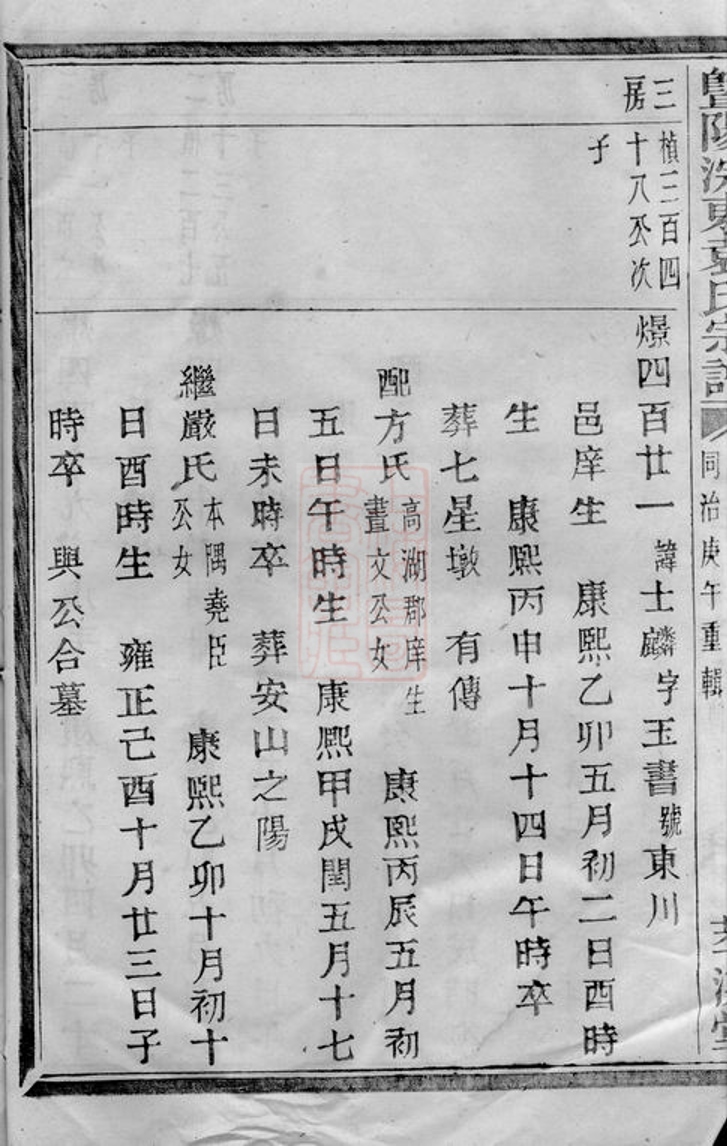 暨陽浣東袁氏宗譜
同治庚午重輯
三房
楨三百四十八公次子
燝四百廿一諱士麟字玉書號東川
邑庠生 康熙乙卯五月初二日酉時
生 康熙丙申十月十四日午時卒
葬七星墩 有傳
配方氏高湖郡庠生晝文公女 康熙丙辰五月初
五日午時生 康熙甲戌閏五月十七
日未時卒 葬安山之陽
繼嚴氏本隅堯臣公女 康熙乙卯十月初十
日酉時生 雍正己酉十月廿三日子
時卒 與公合墓